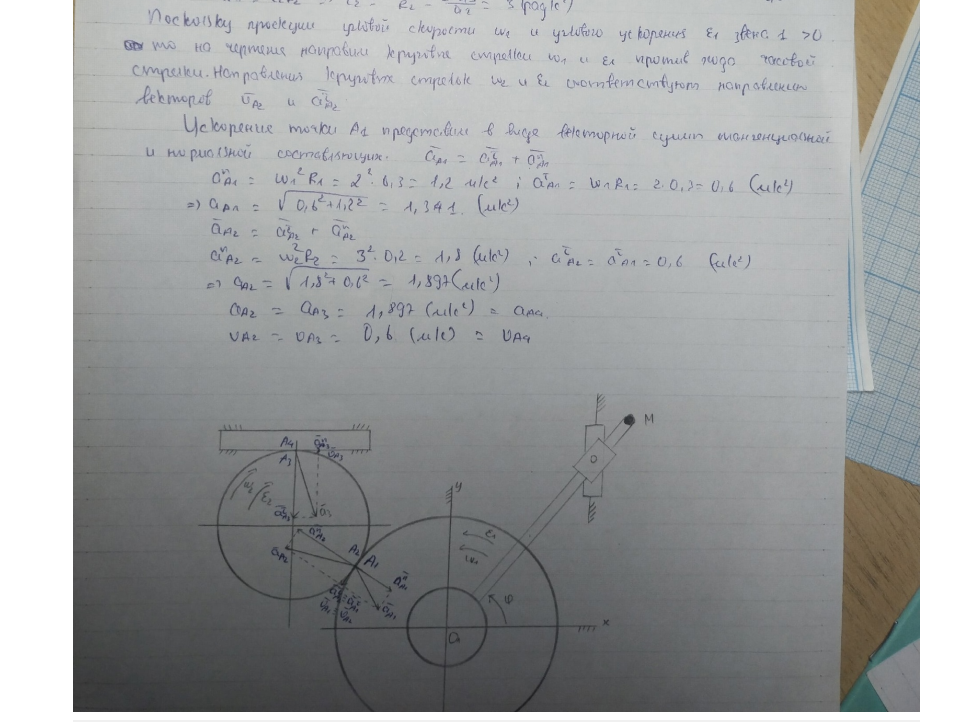 Поскольку проекции угловой скорости ω₁ и углового ускорения ε₁ звена 1 >0
то на чертеже направим круговые стрелки ω₁ и ε₁ против хода часовой
стрелки. Направления круговых стрелок ω₂ и ε₂ соответствуют направлению
векторов v̄A₂ и āᵗA₂
Ускорение точки A₁ представим в виде векторной суммы тангенциальной
и нормальной составляющих. āA₁ = āᵗA₁ + āⁿA₁
aⁿA₁ = ω₁²R₁ = 2²·0,3 = 1,2 м/с² ; āᵗA₁ = ω₁R₁ = 2·0,3 = 0,6 (м/с²)
=> aA₁ = √0,6²+1,2² = 1,341 (м/с²)
āA₂ = āᵗA₂ + āⁿA₂
aⁿA₂ = ω₂²R₂ = 3²·0,2 = 1,8 (м/с²) ; āᵗA₂ = āᵗA₁ = 0,6 (м/с²)
=> aA₂ = √1,8²+0,6² = 1,897 (м/с²)
aA₂ = aA₃ = 1,897 (м/с²) = aA₄
vA₂ = vA₃ = 0,6 (м/с) = vA₄
M
A₄
A₃
O
ω₂ ε₂
y
ε₁
āA₂
A₂ A₁
āⁿA₁
āA₁
φ
x
O₁